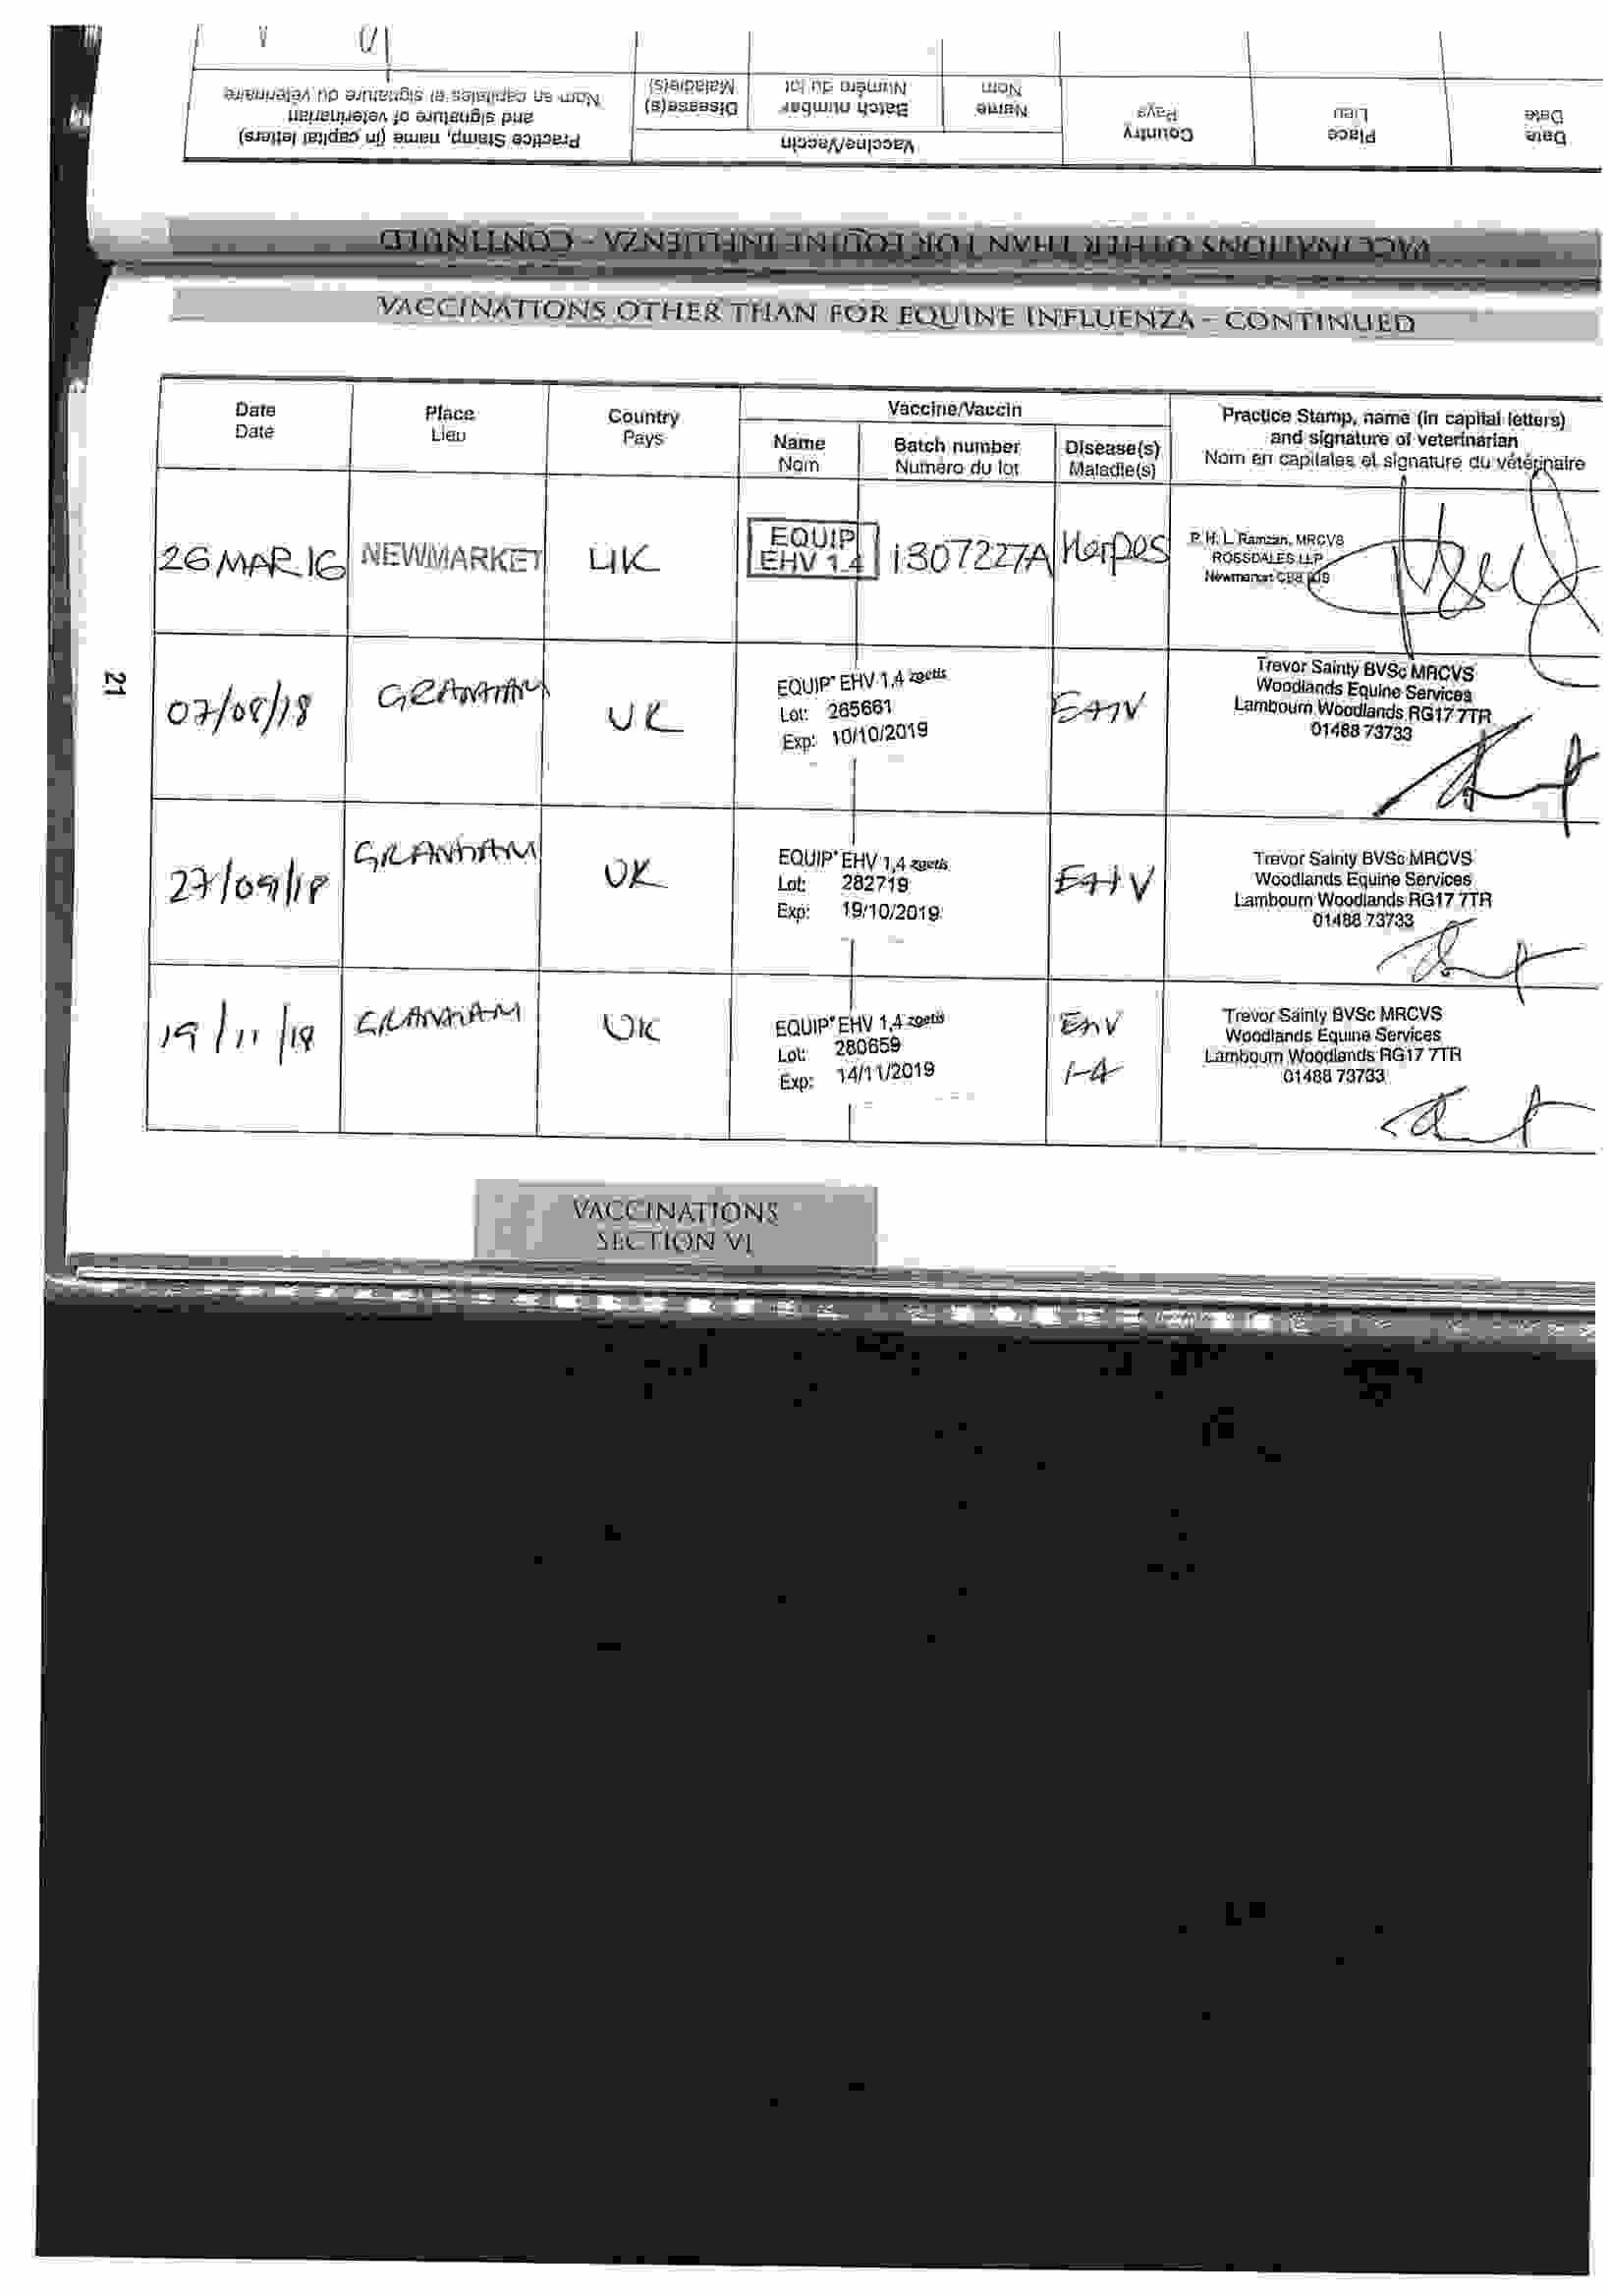 Practice Stamp, name (in capital letters)
and signature of veterinarian
Nom en capitales et signature du vétérinaire
Vaccine/Vaccin
Disease(s)
Maladie(s)
Batch number
Numéro du lot
Name
Nom
Country
Pays
Place
Lieu
Date
Date
VACCINATIONS OTHER THAN FOR EQUINE INFLUENZA - CONTINUED
VACCINATIONS OTHER THAN FOR EQUINE INFLUENZA - CONTINUED
Date
Date
Place
Lieu
Country
Pays
Vaccine/Vaccin
Name
Nom
Batch number
Numéro du lot
Disease(s)
Maladie(s)
Practice Stamp, name (in capital letters)
and signature of veterinarian
Nom en capitales et signature du vétérinaire
26 MAR 16
NEWMARKET
UK
EQUIP
EHV 1.4
1307227A
Herpes
P. H. L. Ramzan, MRCVS
ROSSDALES LLP
Newmarket CB8
21
07/08/18
GRANHAM
UK
EQUIP® EHV 1,4 zoetis
Lot: 265661
Exp: 10/10/2019
EHV
Trevor Sainty BVSc MRCVS
Woodlands Equine Services
Lambourn Woodlands RG17 7TR
01488 73733
27/09/18
GRANHAM
UK
EQUIP® EHV 1,4 zoetis
Lot: 282719
Exp: 19/10/2019
EHV
Trevor Sainty BVSc MRCVS
Woodlands Equine Services
Lambourn Woodlands RG17 7TR
01488 73733
19/11/18
GRANHAM
UK
EQUIP® EHV 1,4 zoetis
Lot: 280659
Exp: 14/11/2019
EHV
1-4
Trevor Sainty BVSc MRCVS
Woodlands Equine Services
Lambourn Woodlands RG17 7TR
01488 73733
VACCINATIONS
SECTION VI